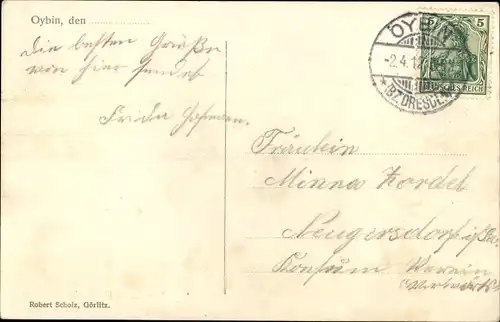 Oybin, den
Die besten Grüße
von hier sendet
Frida
OYBIN
-2.4.1
*(BZ. DRESDEN)
5 5
DEUTSCHES REICH
Fräulein
Minna Zordel
Neugersdorf i/Sa.
Konsum Verein
Robert Scholz, Görlitz.